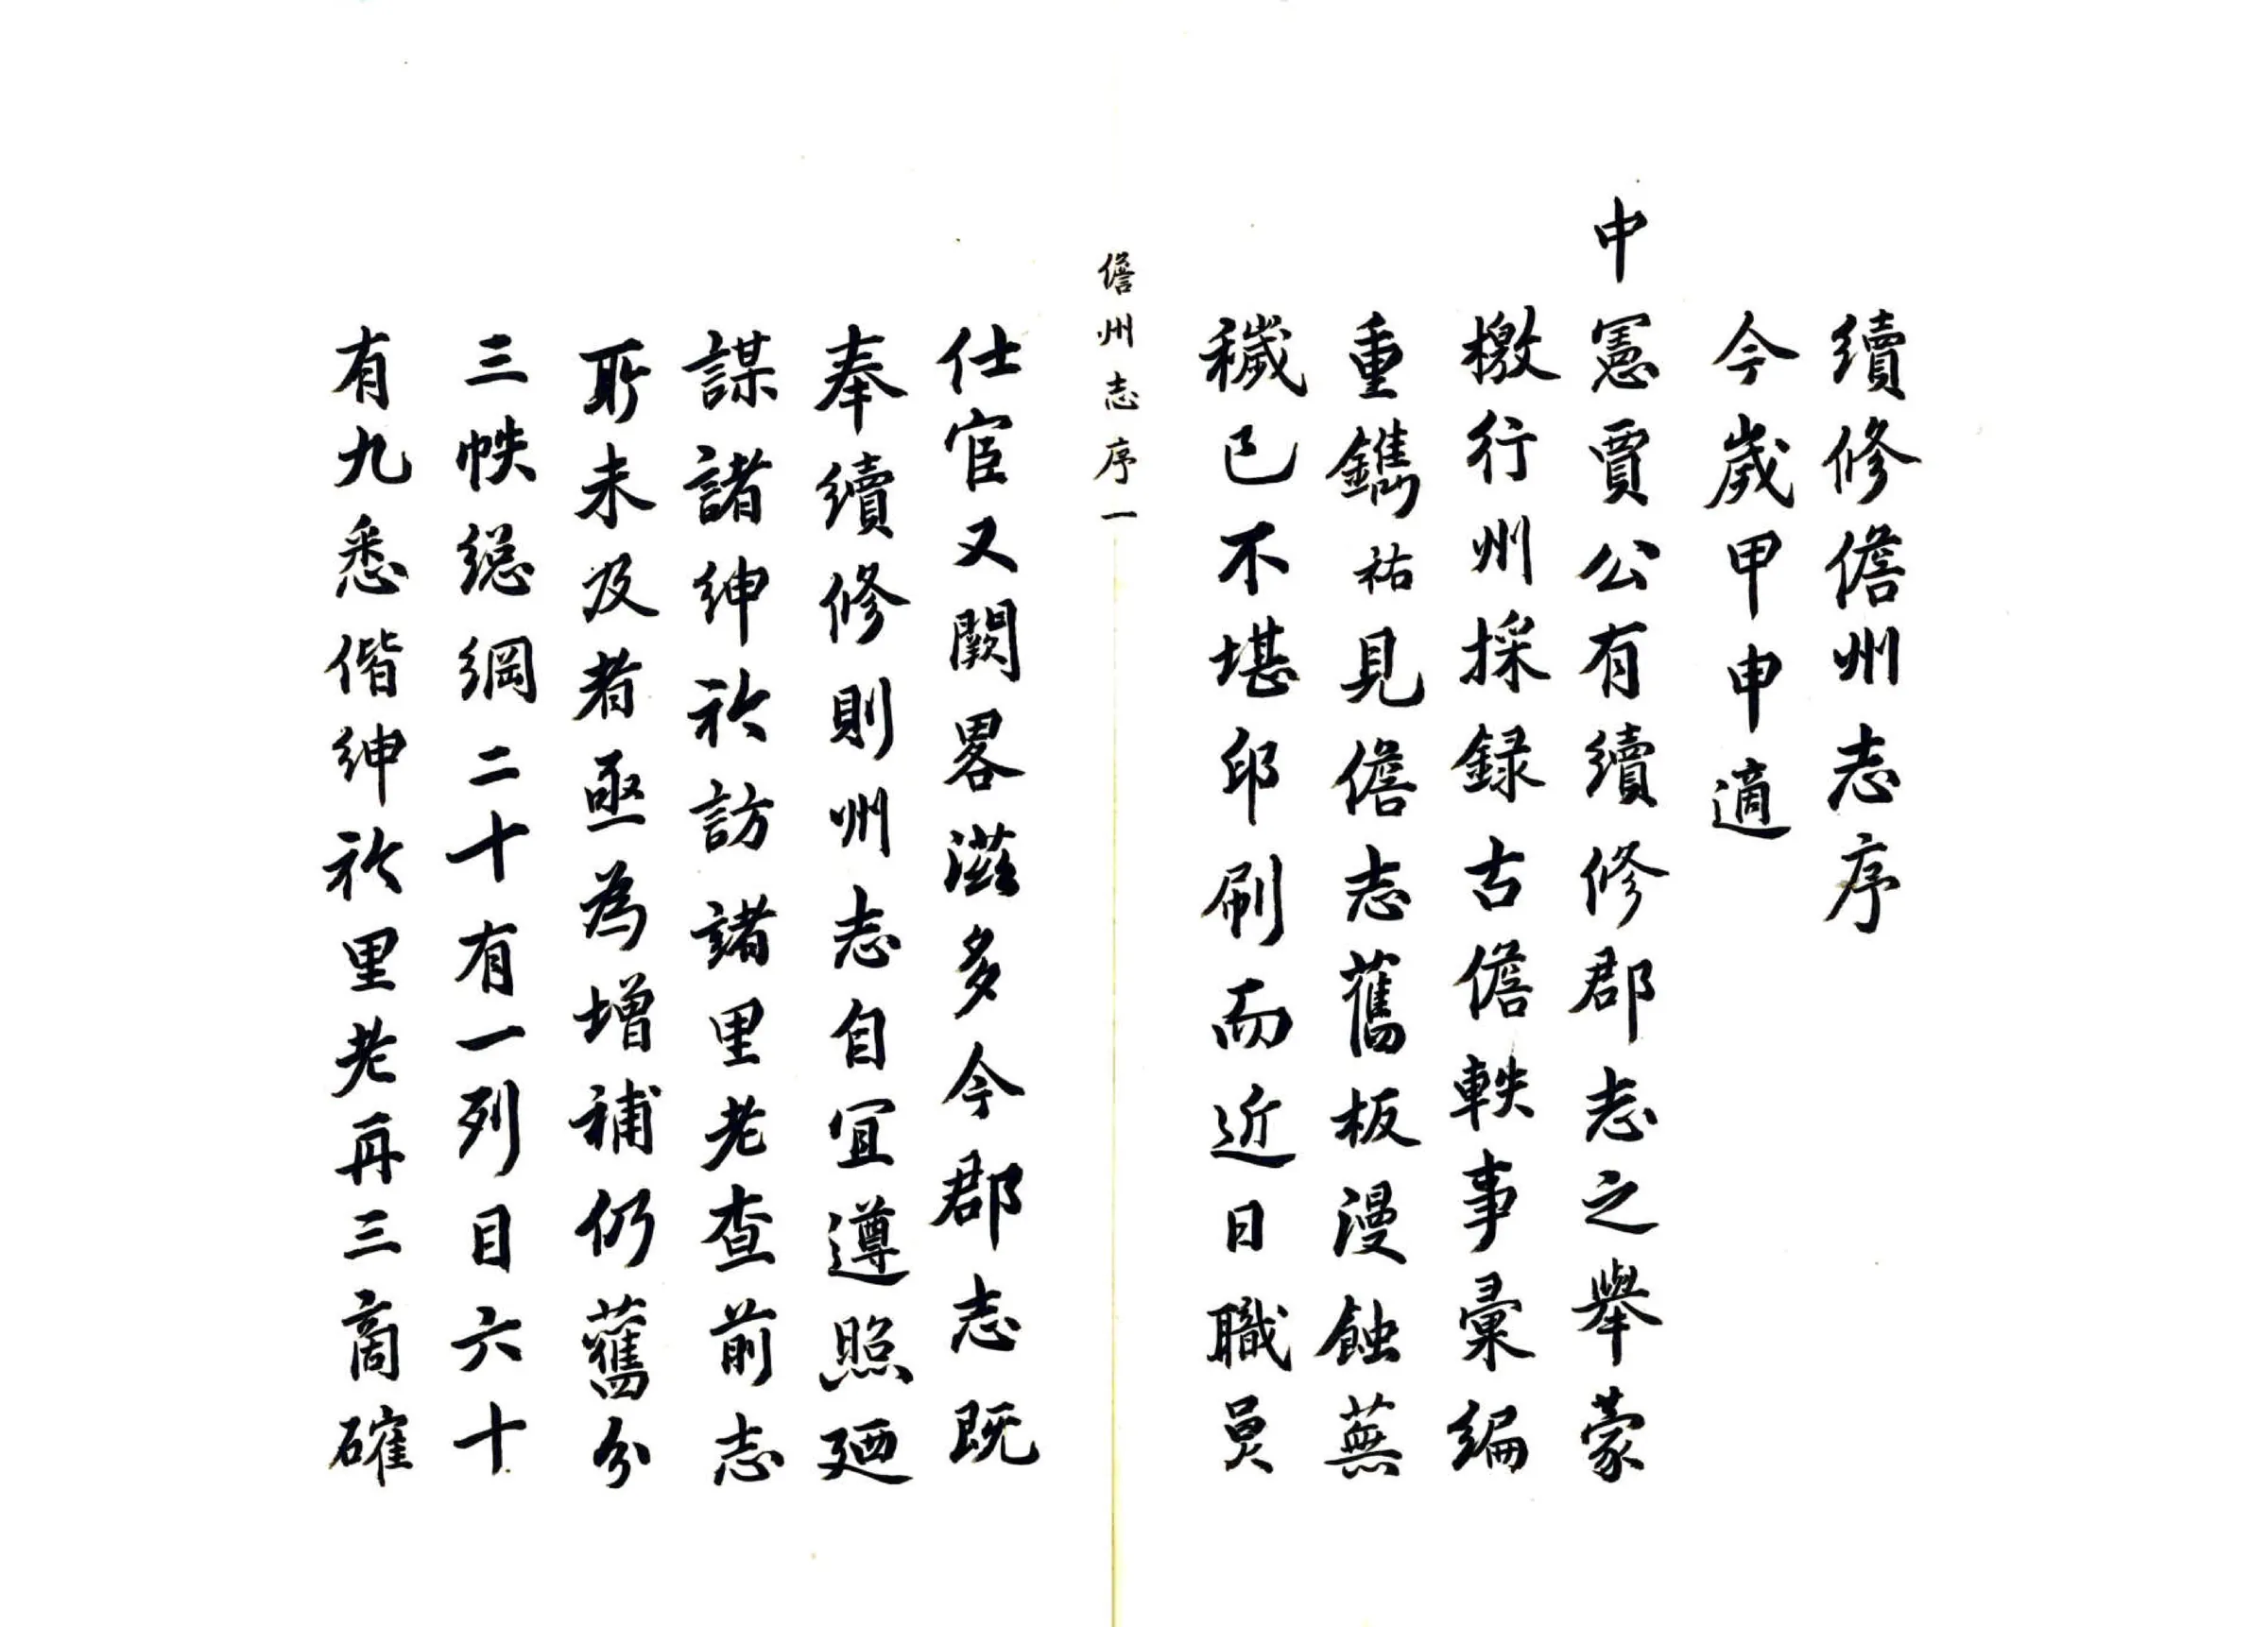 續修儋州志序
今歲甲申適
中憲賈公有續修郡志之舉蒙
檄行州採録古儋軼事彙編
重鐫祐見儋志舊板漫蝕蕪
穢已不堪印刷而近日職員
儋州志序一
仕宦又闕畧滋多今郡志既
奉續修則州志自宜遵照廼
謀諸紳衿訪諸里老查前志
所未及者亟為增補仍舊分
三帙總綱二十有一列目六十
有九悉偕紳衿里老再三商確